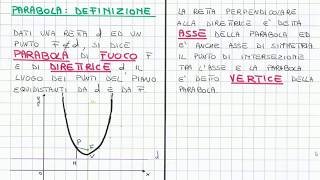 PARABOLA: DEFINIZIONE
DATI UNA RETTA d ED UN
PUNTO F ∉ d, SI DICE
PARABOLA DI FUOCO F
E DI DIRETTRICE d IL
LUOGO DEI PUNTI DEL PIANO
EQUIDISTANTI DA d E DA F
P
F
V
H
d
x
LA RETTA PERPENDICOLARE
ALLA DIRETTRICE E' DETTA
ASSE DELLA PARABOLA ED
E' ANCHE ASSE DI SIMMETRIA
IL PUNTO DI INTERSEZIONE
TRA L'ASSE E LA PARABOLA
E' DETTO VERTICE DELLA
PARABOLA.